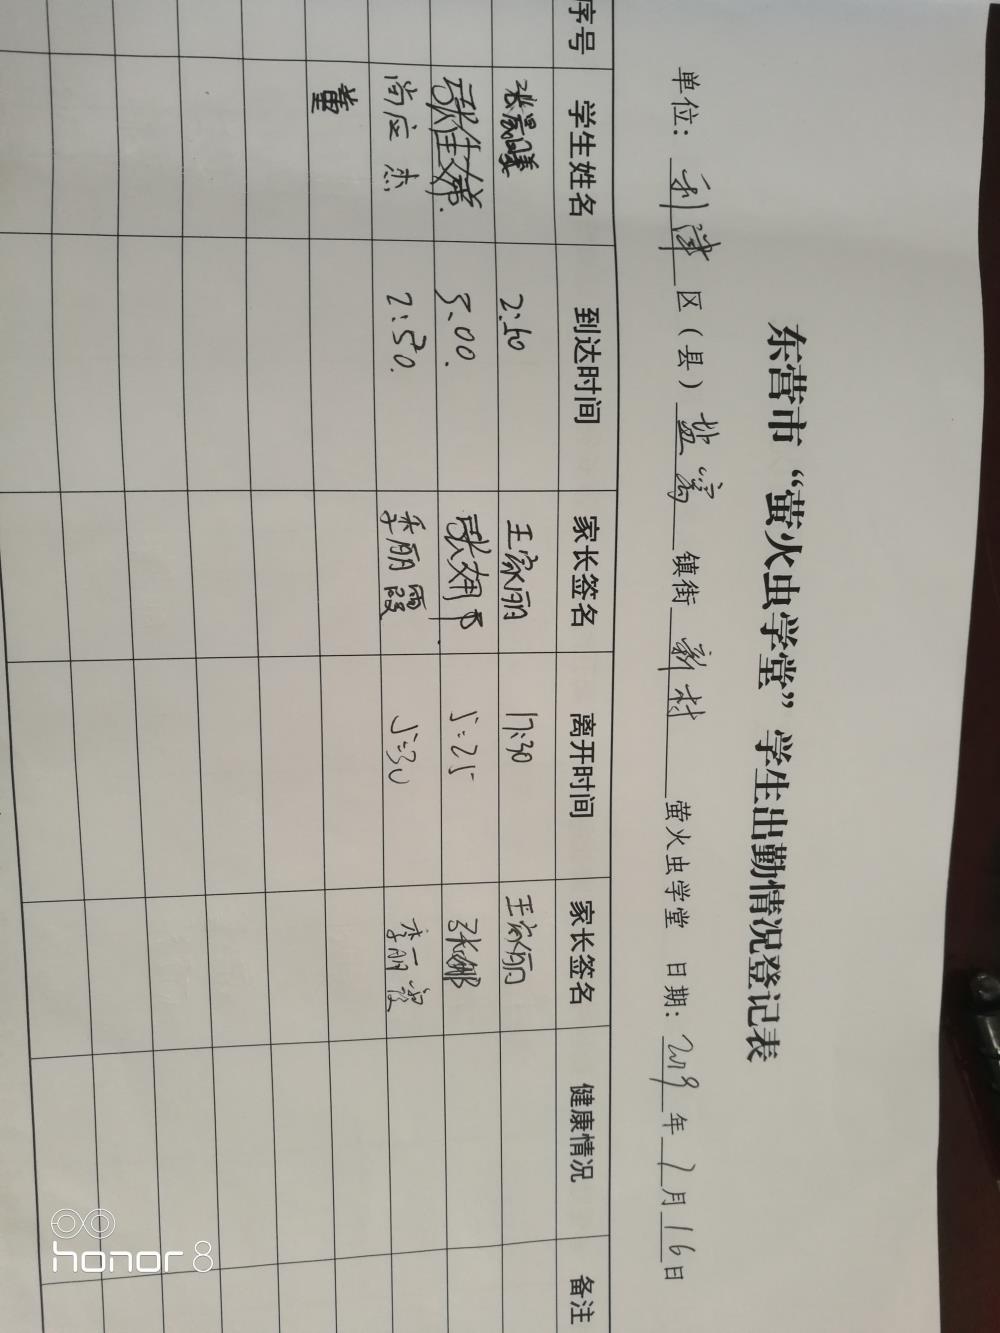 东营市“萤火虫学堂”学生出勤情况登记表
单位：利津区（县）盐窝镇街新村萤火虫学堂 日期：2019年7月16日
序号 学生姓名 到达时间 家长签名 离开时间 家长签名 健康情况 备注
张晨曦 2:50 王家俪 17:30 王家俪
张佳 5:00. 张娜 5:25 张娜
尚应杰 2:50. 季丽霞 5:30 季丽霞
honor 8